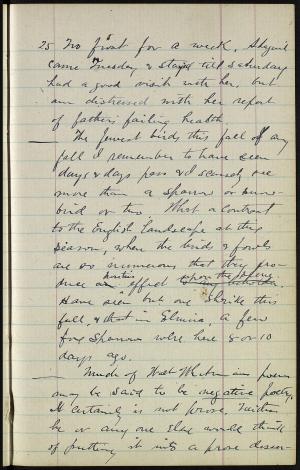 25 No frost for a week. Abigail
came Tuesday & staid till Saturday
had a good visit with her, but
am distressed with her report
of father's failing health.
The fewest birds this fall of any
fall I remember to have seen
days & days pass & I scarcely see
more than a sparrow or snow-
bird or two. What a contrast
to the English landscape at this
season, where the birds & fowls
are so numerous that they pro-
duce an effect upon the
Have seen but one shrike this
fall, & that in Elmira, a few
fox sparrows were here 8 or 10
days ago.
Much of Walt Whitman's poems
may be said to be negative poetry,
It certainly is not prose. Neither
he or any one else would think
of putting it into a prose discour-